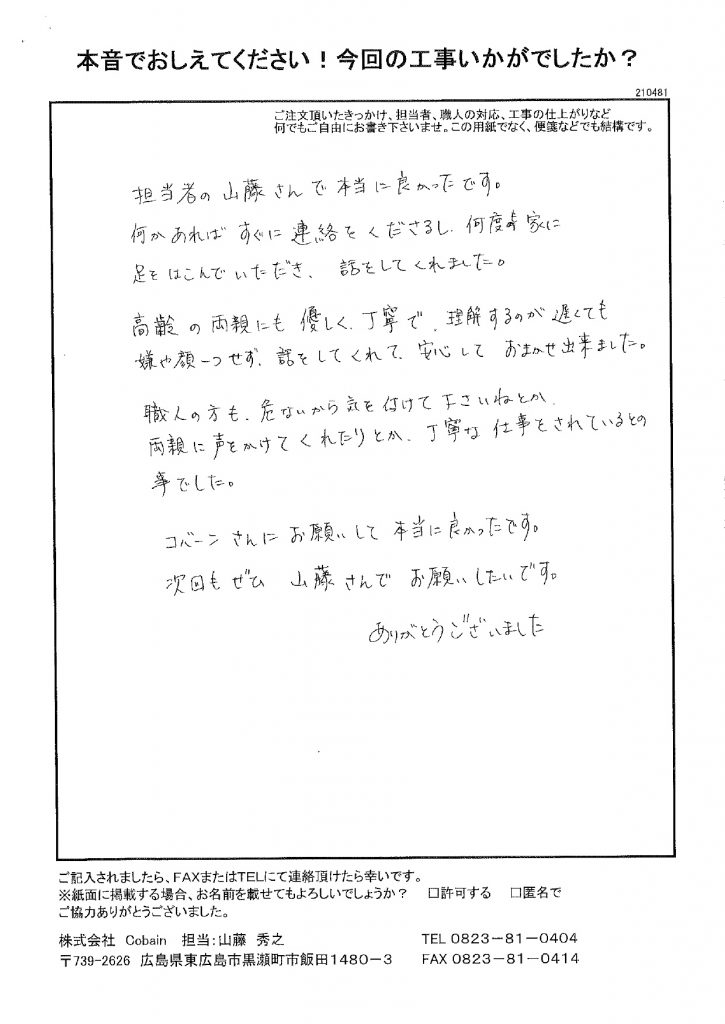 本音でおしえてください！今回の工事いかがでしたか？
210481
ご注文頂いたきっかけ、担当者、職人の対応、工事の仕上がりなど
何でもご自由にお書き下さいませ。この用紙でなく、便箋などでも結構です。
担当者の山藤さんで本当に良かったです。
何かあればすぐに連絡をくださるし、何度も家に
足をはこんでいただき、話をしてくれました。
高齢の両親にも優しく、丁寧で、理解するのが遅くても
嫌や顔一つせず、話をしてくれて、安心しておまかせ出来ました。
職人の方も、危ないから気を付けて下さいねとか、
両親に声をかけてくれたりとか、丁寧な仕事をされているとの
事でした。
コバーンさんにお願いして本当に良かったです。
次回もぜひ山藤さんでお願いしたいです。
ありがとうございました
ご記入されましたら、FAXまたはTELにて連絡頂けたら幸いです。
※紙面に掲載する場合、お名前を載せてもよろしいでしょうか？　□許可する　□匿名で
ご協力ありがとうございました。
株式会社　Cobain　担当：山藤　秀之　TEL 0823－81－0404
〒739-2626　広島県東広島市黒瀬町市飯田1480－3　FAX 0823－81－0414